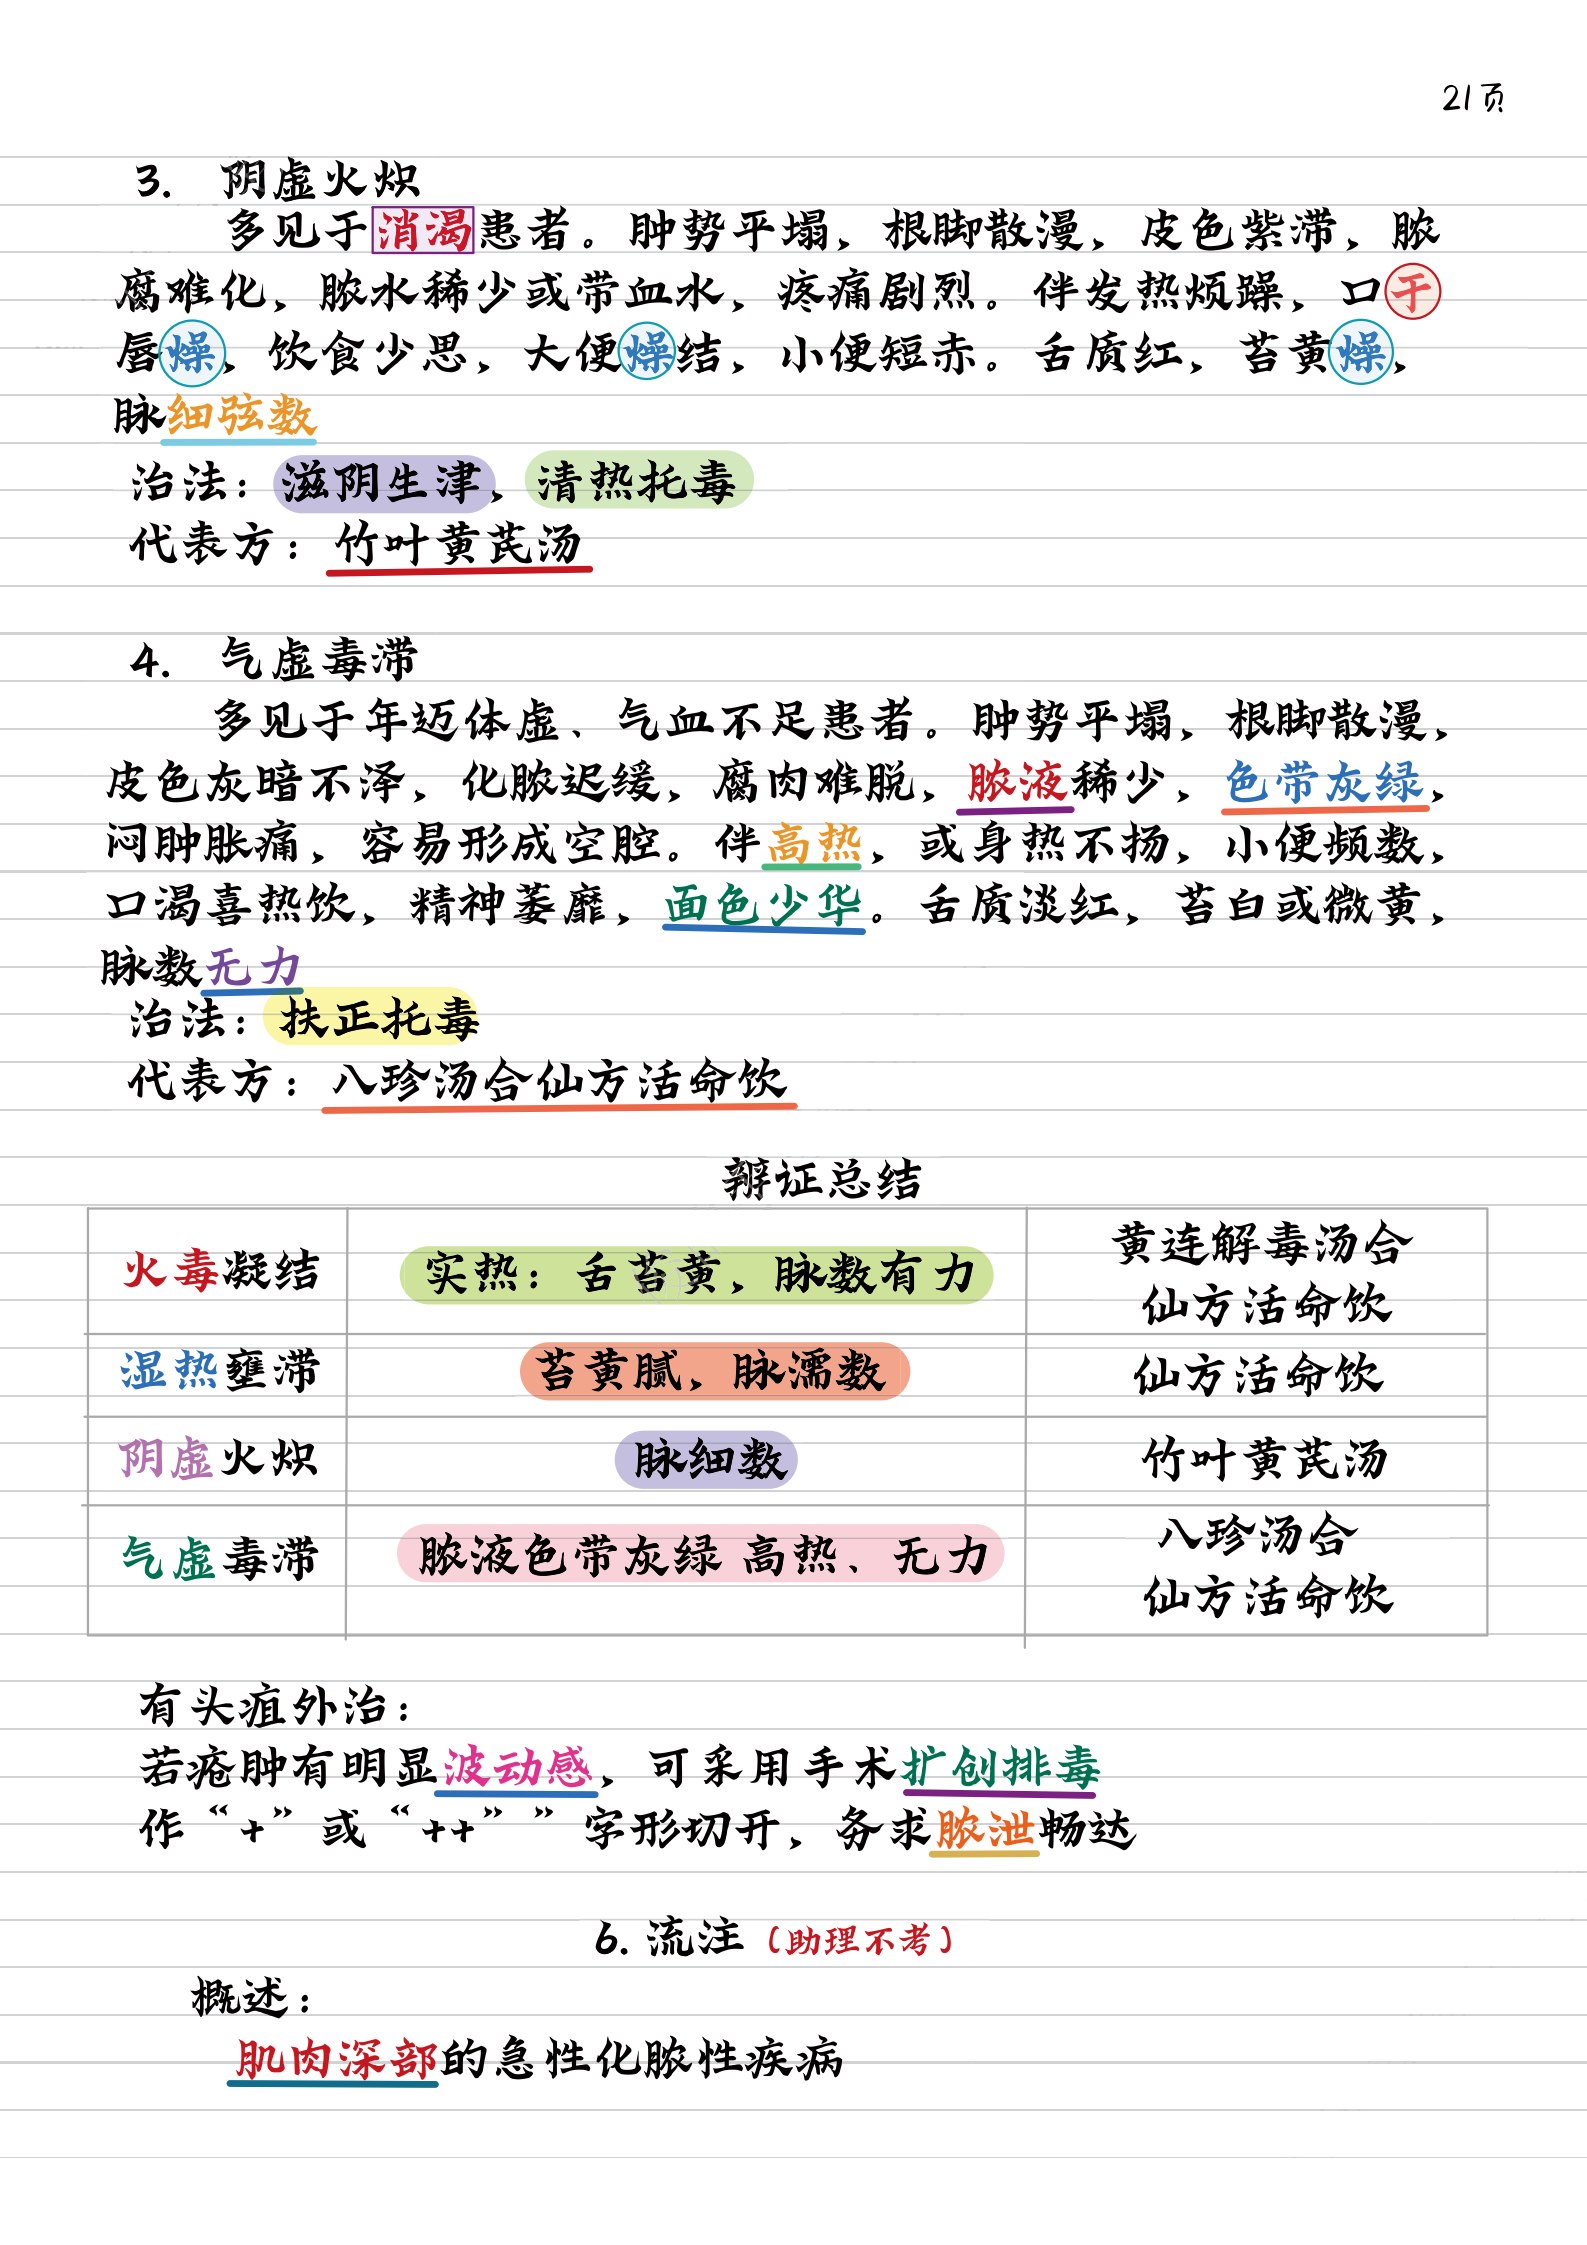 21页
3. 阴虚火炽
多见于消渴患者。肿势平塌，根脚散漫，皮色紫滞，脓
腐难化，脓水稀少或带血水，疼痛剧烈。伴发热烦躁，口干
唇燥，饮食少思，大便燥结，小便短赤。舌质红，苔黄燥，
脉细弦数
治法：滋阴生津，清热托毒
代表方：竹叶黄芪汤
4. 气虚毒滞
多见于年迈体虚、气血不足患者。肿势平塌，根脚散漫，
皮色灰暗不泽，化脓迟缓，腐肉难脱，脓液稀少，色带灰绿，
闷肿胀痛，容易形成空腔。伴高热，或身热不扬，小便频数，
口渴喜热饮，精神萎靡，面色少华。舌质淡红，苔白或微黄，
脉数无力
治法：扶正托毒
代表方：八珍汤合仙方活命饮
辨证总结
火毒凝结 实热：舌苔黄，脉数有力 黄连解毒汤合
仙方活命饮
湿热壅滞 苔黄腻，脉濡数 仙方活命饮
阴虚火炽 脉细数 竹叶黄芪汤
气虚毒滞 脓液色带灰绿 高热、无力 八珍汤合
仙方活命饮
有头疽外治：
若疮肿有明显波动感，可采用手术扩创排毒
作“+”或“++””字形切开，务求脓泄畅达
6. 流注（助理不考）
概述：
肌肉深部的急性化脓性疾病